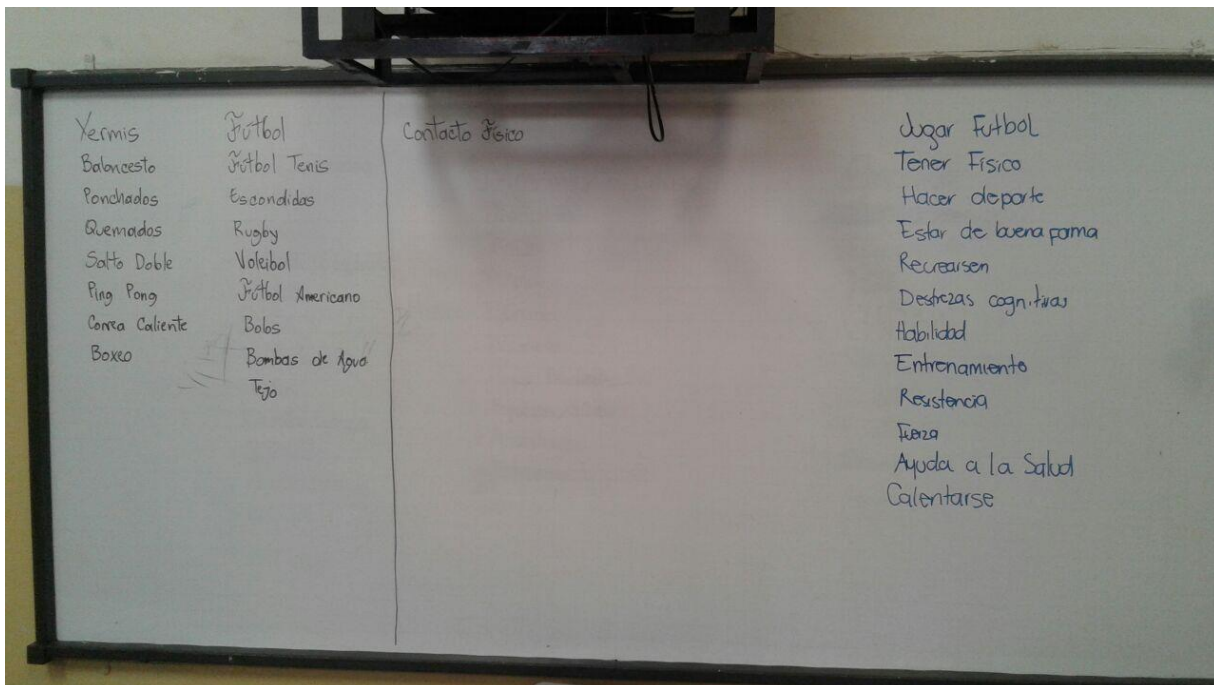 Yermis
Baloncesto
Ponchados
Quemados
Salto Doble
Ping Pong
Correa Caliente
Boxeo
Fútbol
Fútbol Tenis
Escondidas
Rugby
Voleibol
Fútbol Americano
Bobs
Bombas de Agua
Tejo
Contacto Físico
Jugar Futbol
Tener Físico
Hacer deporte
Estar de buena forma
Recrearsen
Destrezas cognitivas
Habilidad
Entrenamiento
Resistencia
Fuerza
Ayuda a la Salud
Calentarse